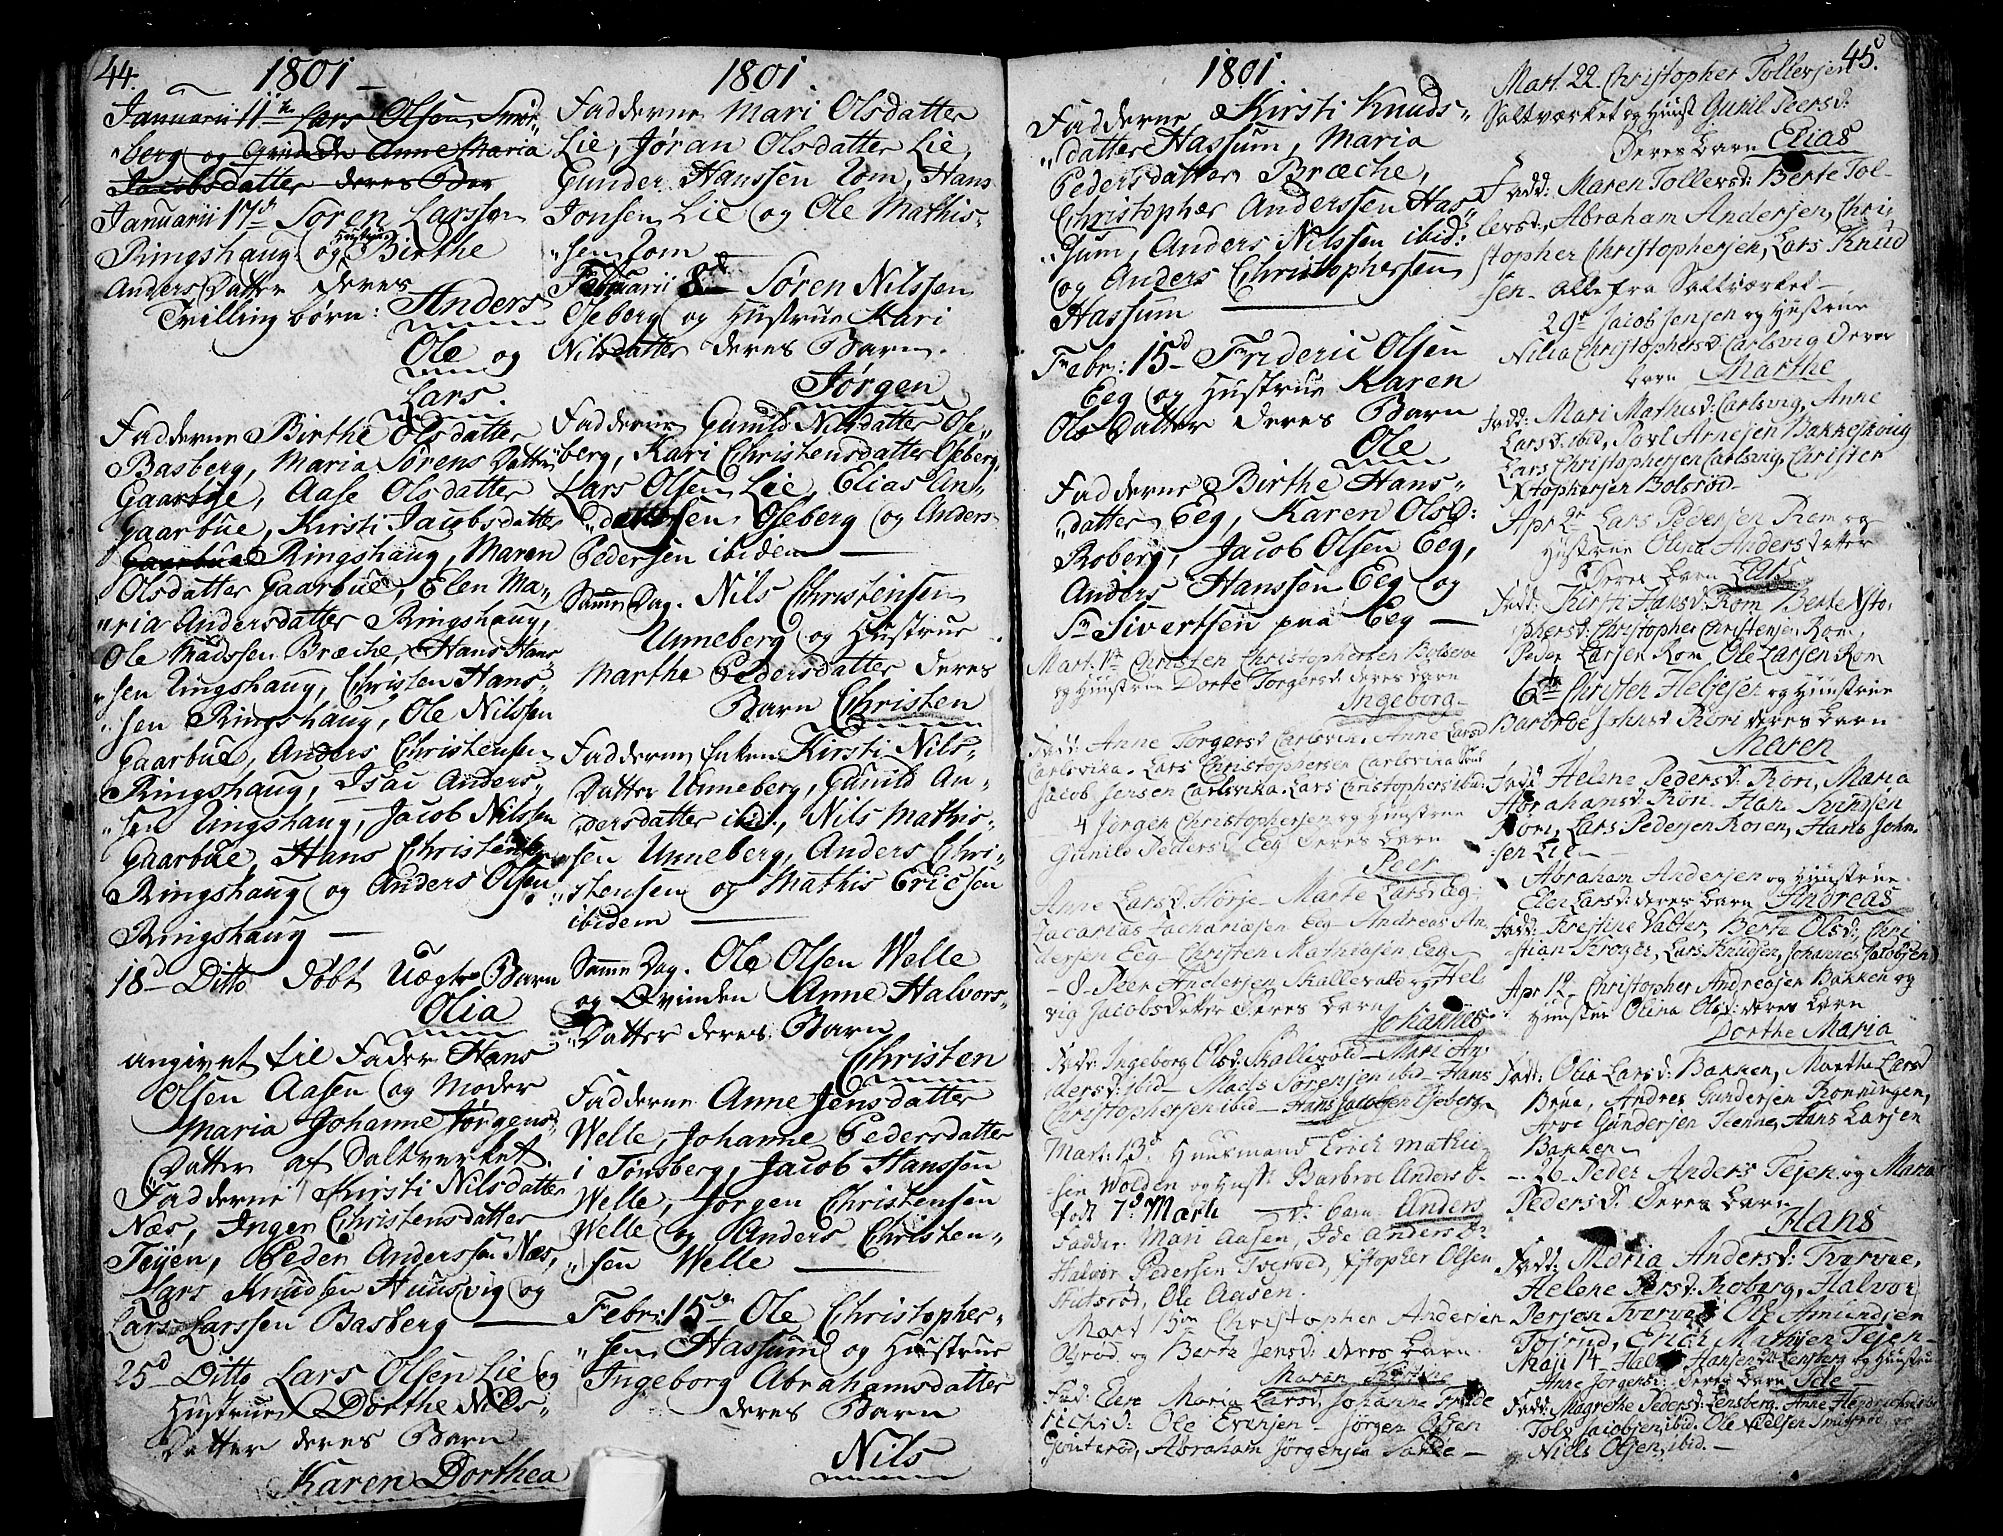 44.
1801
Januarii 11te Lars Olsen Smør-
berg og Qvinde Anne Maria
Jacobsdatter deres Bar
Januarii 17d Søren Larssen
Ringshaug og Hustrue Birthe
Anders Datter deres
Trilling børn: Anders
Ole og
Lars.
Fadderne Birthe Olsdatter
Basberg, Maria Sørens Datter
Gaarbue, Aase Olsdatter
Gaarbue, Kirsti Jacobsdatter
Gaarbue Ringshaug, Maren
Olsdatter Gaarbue, Elen Ma-
ria Andersdatter Ringshaug,
Ole Madssen Bræche, Hans Hans-
sen Ringshaug, Christen Hans-
sen Ringshaug, Ole Nilssen
Gaarbue, Anders Christensen
Ringshaug, Isac Anders-
sen Ringshaug, Jacob Nilssen
Gaarbue, Hans Christensen
Ringshaug og Anders Olsen
Ringshaug
18d Ditto døbt Uægte Barn
Olia
angivet til Fader Hans
Olsen Aasen og Moder
Maria Johanne Jørgens-
Datter af Saltverket.
Fadderne Kirsti Nilsdatter
Næs, Inger Christensdatter
Tejen, Peder Anderssen Næs,
Lars Knudsen Huusvig og
Lars Larssen Basberg
25d Ditto Lars Olsen Lie og
Hustrue Dorthe Nils-
Datter deres Barn
Karen Dorthea
1801
Fadderne Mari Olsdatter
Lie, Jøran Olsdatter Lie,
Gunder Hanssen Rom, Hans
Jonsen Lie og Ole Mathis-
sen Rom
Februarii 8de Søren Nilssen
Oseberg og Hustrue Kari
Nilsdatter deres Barn.
Jørgen
Fadderne Gunild Nilsdatter Ose-
berg, Kari Christensdatter Oseberg,
Lars Olsen Lie, Elias An-
derssen Oseberg og Anders
Pedersen ibidem
Samme Dag. Nils Christensen
Unneberg og Hustrue
Marthe Pedersdatter deres
Barn Christen
Fadderne Enken Kirsti Nils-
Datter Unneberg, Gunild An-
dersdatter ibid., Nils Mathis-
sen Unneberg, Anders Chri-
stensen og Mathis Ericsen
ibidem
Samme Dag. Ole Olsen Welle
og Qvinden Anne Halvors-
Datter deres Barn
Christen
Fadderne Anne Jensdatter
Welle, Johanne Pedersdatter
i Tønsberg, Jacob Hanssen
Welle, Jørgen Christensen
Welle og Anders Christen-
sen Welle
Febr: 15de Ole Christopher-
sen Hassum og Hustrue
Ingeborg Abrahamsdatter
deres Barn
Nils
1801
Fadderne Kirsti Knuds-
datter Hassum, Maria
Pedersdatter Bræche,
Christopher Anderssen Has-
sum, Anders Nilssen ibid:
og Anders Christophersen
Hassum
Febr: 15d Frideric Olsen
Eeg og Hustrue Karen
Ols Datter deres Barn
Ole
Fadderne Birthe Hans-
datter Eeg, Karen Olsd:
Roberg, Jacob Olsen Eeg,
Anders Hanssen Eeg og
Sr Sivertsen paa Eeg
Mart. 1te Christen Christophersen
og Huustrue Dorte Torgersd: deres barn
Ingeborg
Fadd: Anne Torgersd Carlsvika, Anne Larsd
Carlsvika. Lars Christophersen Carlsvika
Jacob Jensen Carlsvika. Lars Christophers: ibid
Jørgen Christophersen og Huustrue
Gunild Pedersd Eeg deres barn
Peer
Anne Larsd. Horje. Marte Larsd Eeg.
Zacarias Zachariasen Eeg. Andreas An-
dersen Eeg. Christen Mathiasen Eeg
8 Peer Andersen Skallevold og Hel-
vig Jacobsdatter deres barn
Johannes
Fadd: Ingeborg Olsd: Skallevold. Mari An-
dersd: ibid. Mads Sørensen ibid. Hans
Christophersen ibid. Hans Jacobsen Oseberg
Mart: 13d Huusmand Erich Mathi-
sen Wolden og Hust: Barbroe Anders D.
født 7d Marti d: barn Anders
Faddre. Mari Aasen, Ide Anders Dr
Halvor Pedersen Tverved, Xstopher Olsen
Stutsrød, Ole Aasen.
Mart 15de Christopher Andersen
Olsrød og Berte Jensd: deres barn.
Maren
Fad: Elen Maria Larsd, Johanne Fride-
richsd: Ole Evensen. Jørgen Olsen
Gouterød, Abraham Jørgensen Sande
45.
Mart. 22 Christopher Tollevsen
Saltværket og Huust Gunil Peersd:
deres barn Elias
Fadd: Maren Tollevsd: Berte Tol-
levsd: Abraham Andersen, Chri-
stopher Christophersen, Lars Knud-
sen alle fra Saltværket
29de Jacob Jensen og Hustrue
Nilia Christophersd: Carlsvig deres
barn Marthe
Fadd: Mari Mathisd: Carlsvig, Anne
Larsd: ibid, Povl Arnesen Bakkeskovig
Lars Christophersen Carlsvig, Christen
Xstophersen Bolsrød
Apr 2de Lars Pedersen Rom og
Hustrue Olina Andersdatter
deres barn Lars
Fadd: Kirsti Hansd: Rom Berte Xsto-
phersd: Christopher Christensen Rom,
Peder Larsen Rom, Ole Larsen Rom
6te Christen Heljesen og Huustrue
Barbroe Johnsd Røri deres barn
Maren
Fadd: Helene Pedersd: Røri, Maria
Abrahamsd: Røri. Hans Svendsen
Rom, Lars Pedersen Roren, Hans John-
sen Lie
Abraham Andersen og Huustrue
Elen Larsd: deres barn Andreas
Fadd: Kirstine Valter, Berte Olsd:, Chri-
stian Kroger, Lars Knudsen, Johannes Jacobsen
Apr 12 Christopher Andreasen Bakken og
Hunstrue Olina Olsd: deres barn
Dorthe Maria
Fadd: Olia Larsd: Bakken, Marthe Larsd
Brue, Andres Gundersen Rønningen,
Arve Gundersen Teenne, Hans Larsen
Bakken
26 Peder Anders Tejen og Maria
Pedersd: deres barn
Hans
Fadd: Maria Andersd: Tverved,
Helene Persd: Roberg, Halvor
Persen Tverved Ole Amundsen
Tofsrud, Erich Mathisen Tejen
Maji 14 Hansen Lensberg og Huustrue
Anne Jørgensd: deres barn Ide
Fadd: Magrethe Pedersd: Lensberg, Anne Hendrichsd ibid
Tolv Jacobsen, ibid. Ole Nielsen Smidsrød, og
Niels Olsen, ibid.